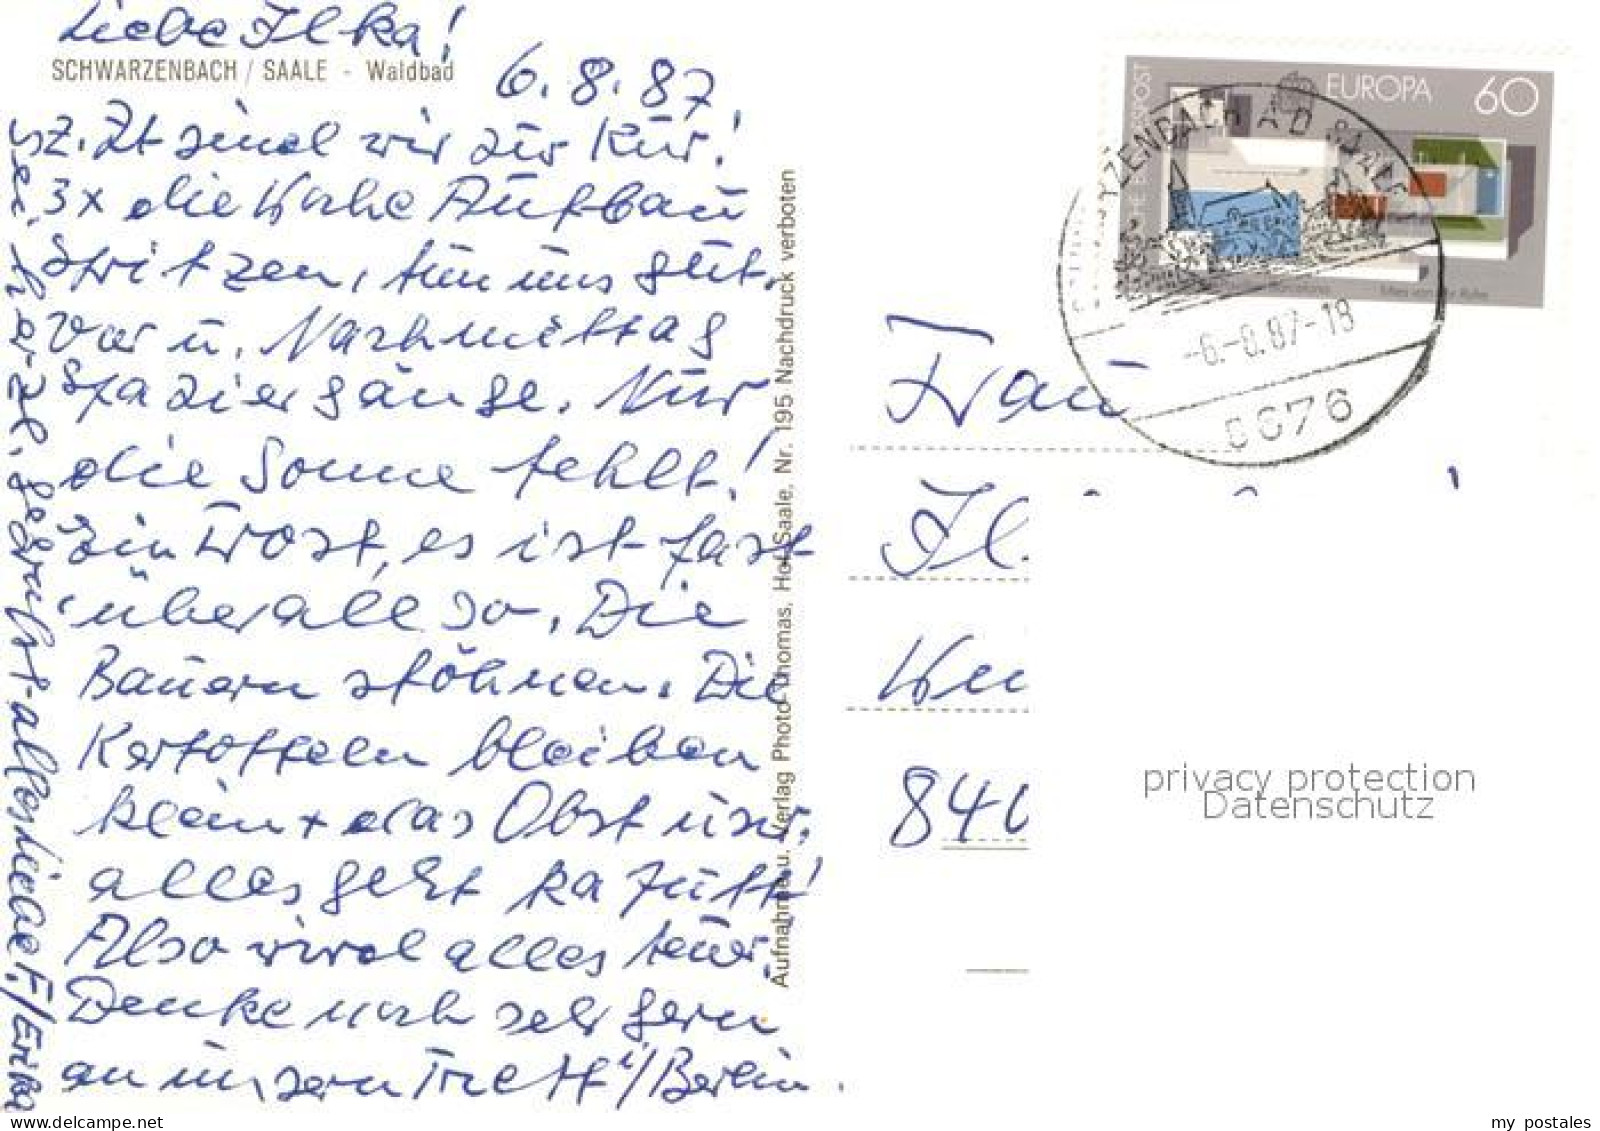 Liebe Ilka!
SCHWARZENBACH / SAALE - Waldbad
6.8.87.
z.Zt sind wir zur Kur!
3x die Woche Aufbau
Spritzen, tun uns gut.
Vor u. Nachmittag
Spaziergänge. Nur
die Sonne fehlt!
Ein Trost, es ist fast
überall so. Die
Bauern stöhnen. Die
Kartoffeln bleiben
klein + das Obst usw.
alles geht kaputt!
Also wird alles teuer.
Denke noch sehr gern
an unsern Treff i/Berlin.
Sei herzl. gegrüßt - alles Liebe F./Erika
Aufnahme u. Verlag Photo-Thomas, Hof/Saale, Nr. 195 Nachdruck verboten
EUROPA 60
BUNDESPOST
Mies van der Rohe
SCHWARZENBACH A D SAALE
-6.-8.87-18
8676
Frau
Il
840
privacy protection
Datenschutz
my postales